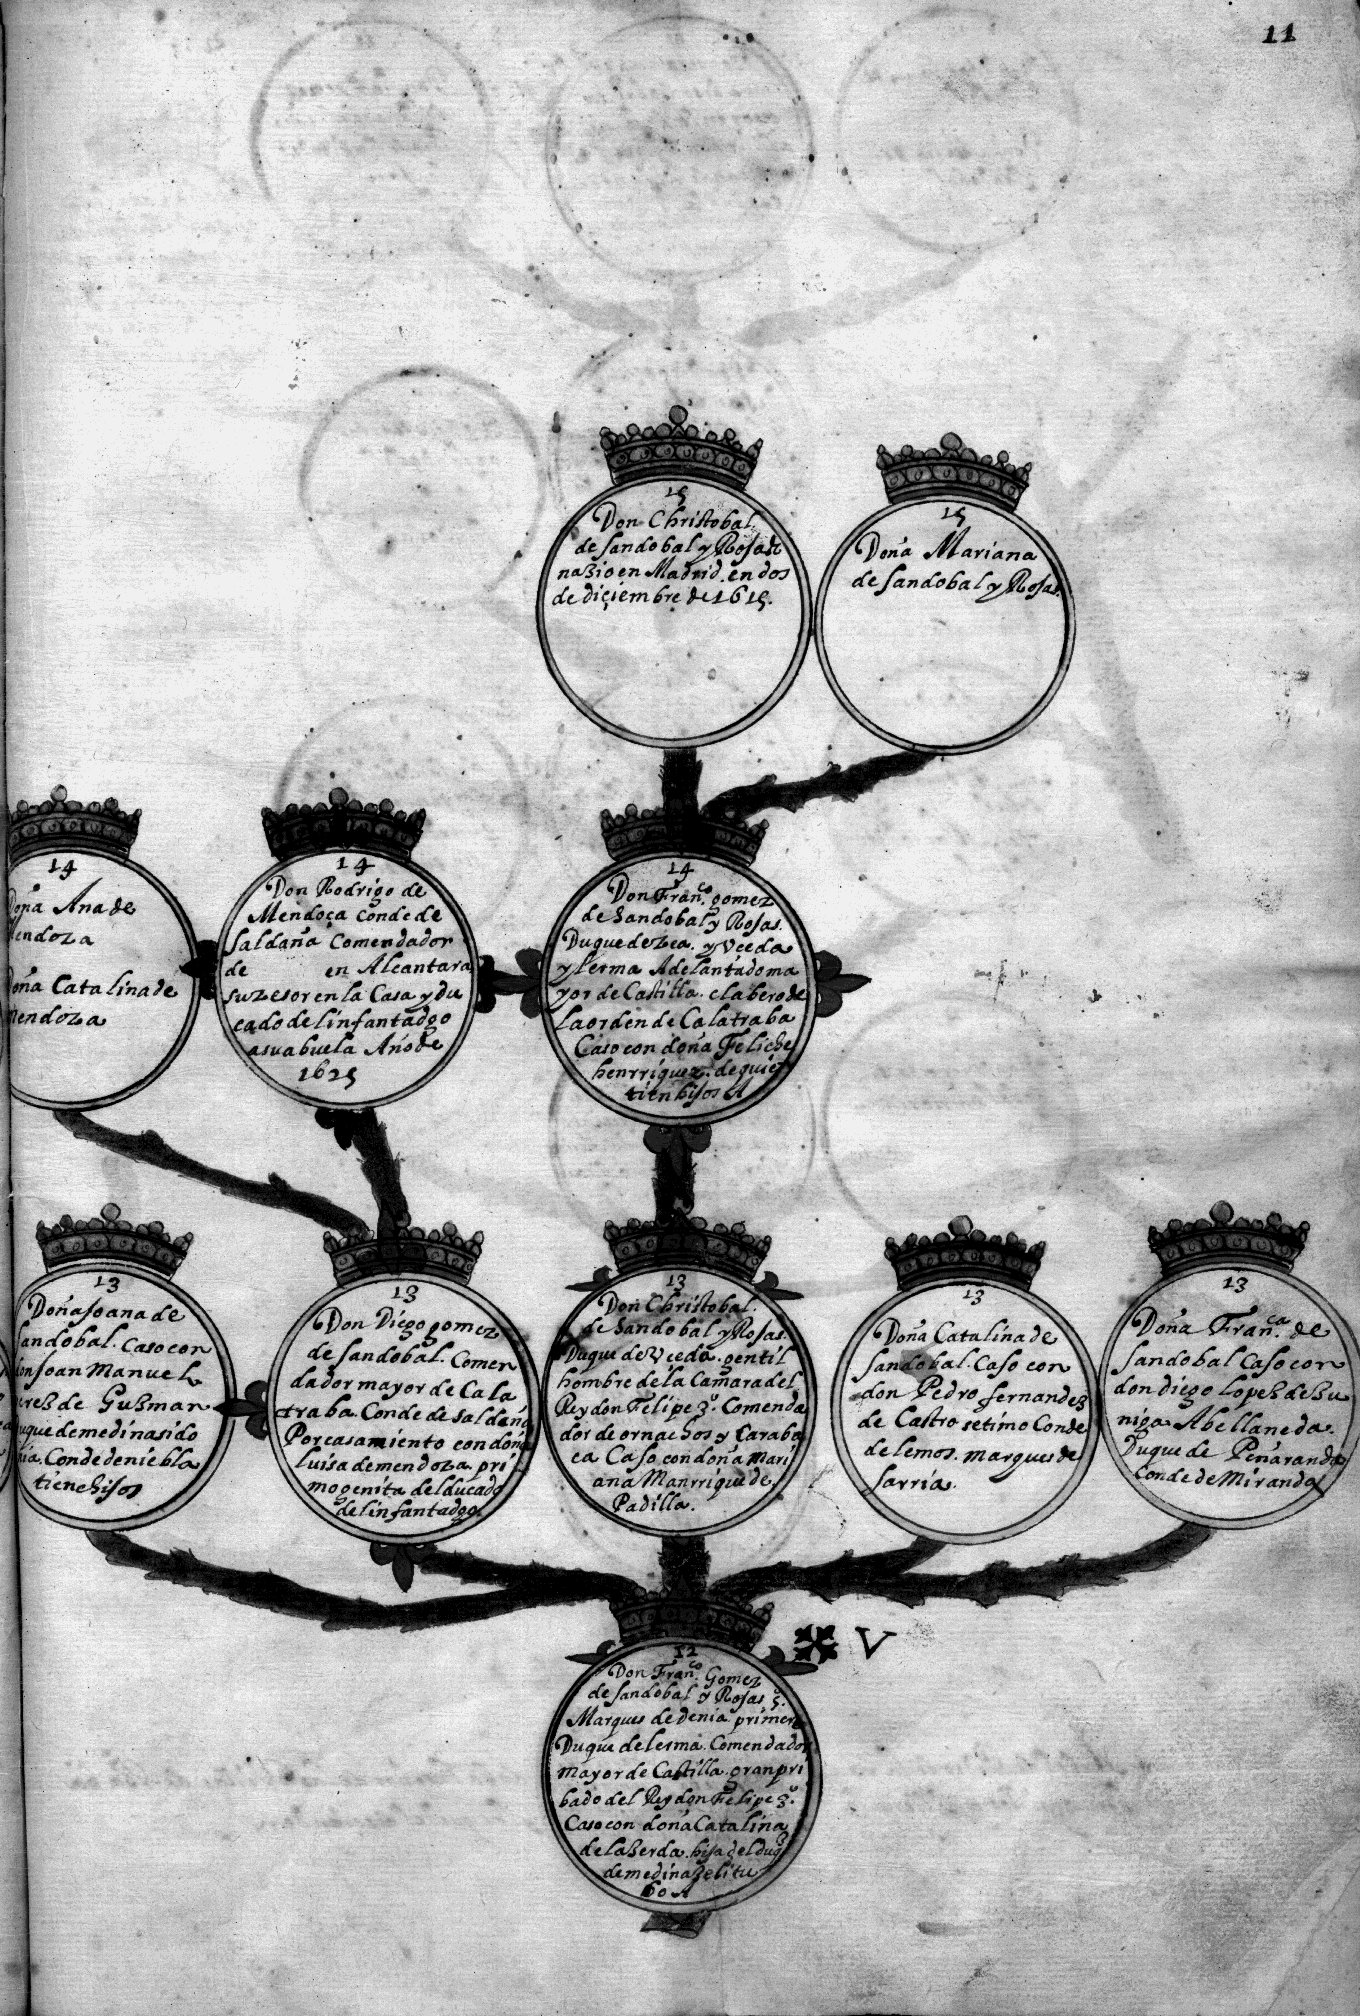 11
15
Don Christobal
de Sandobal y Rosas
nazio en Madrid. en dos
de diçiembre de 1615.
15
Doña Mariana
de Sandobal y Rosas.
14
Doña Ana de
Mendoza
Doña Catalina de
Mendoza
14
Don Rodrigo de
Mendoça Conde de
Saldaña Comendador
de en Alcantara
suzesor en la Casa y du
cado de linfantadgo
a su abuela Año de
1625
14
Don Fran.co gomez
de Sandobal y Rosas.
Duque de zea. y Vceda
y lerma Adelantado ma
yor de Castilla. clabero de
la orden de Calatraba
Caso con doña Feliche
henrriquez. de quien
tien hijos A
13
Doña Joana de
Sandobal. Caso con
don Joan Manuel
perez de Guzman
duque de medinasido
nia. Conde de niebla
tienehijos
13
Don Diego gomez
de Sandobal. Comen
dador mayor de Cala
traba Conde de Saldaña
Por casamiento con doña
luisa de mendoza. pri
mogenita del ducado
de linfantadgo.
13
Don Christobal.
de Sandobal y Rosas.
Duque de Vceda. gentil
hombre de la Camara del
Rey don Felipe 3º. Comenda
dor de ornachos y Caraba
ca Caso con doña Mari
ana Manrrique de
Padilla.
13
Doña Catalina de
Sandobal. Caso con
don Pedro fernandez
de Castro setimo Conde
de lemos. marques de
Sarria.
13
Doña Fran.ca de
Sandobal Caso con
don diego lopez de zu
niga Abellaneda.
Duque de Peñaranda
Conde de Miranda
V
12
Don Fran.co Gomez
de Sandobal y Rosas 5º.
Marques de denia primero
Duque de lerma. Comendador
mayor de Castilla. gran pri
bado del Rey don Felipe 3º.
Caso con doña Catalina
de la zerda. hija del duq
de medinazeli tu
bo A